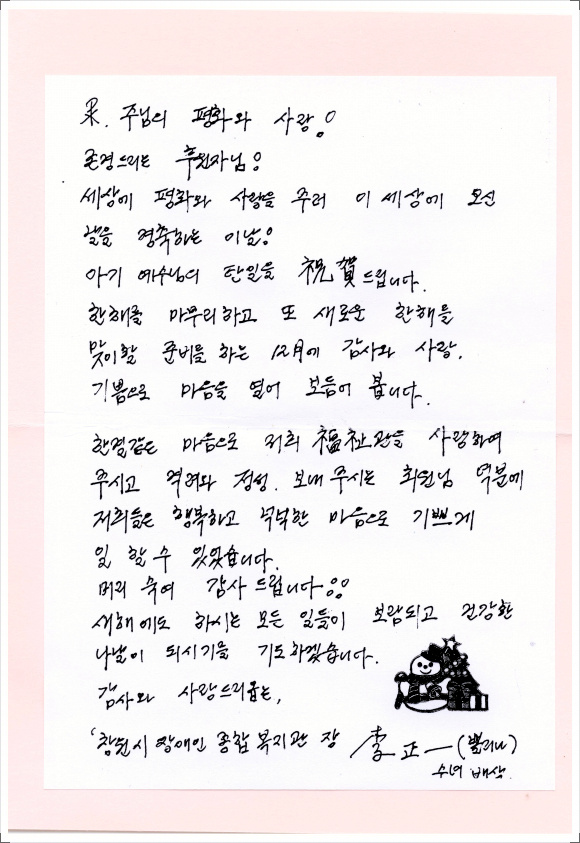 주님의 평화와 사랑!
존경드리는 후원자님!
세상에 평화와 사랑을 주러 이 세상에 오신
날을 경축하는 이날!
아기 예수님의 탄일을 祝賀드립니다.
한해를 마무리하고 또 새로운 한해를
맞이할 준비를 하는 12月에 감사와 사랑,
기쁨으로 마음을 열어 보듬어 봅니다.
한결같은 마음으로 저희 福祉관을 사랑하여
주시고 격려와 정성. 보내 주시는 회원님 덕분에
저희들은 행복하고 넉넉한 마음으로 기쁘게
일 할 수 있었습니다.
머리 숙여 감사 드립니다!!
새해에도 하시는 모든 일들이 보람되고 건강한
나날이 되시기를 기도하겠습니다.
감사와 사랑드리옵는,
창원시 장애인 종합 복지관 장 李正一
수녀 배상.